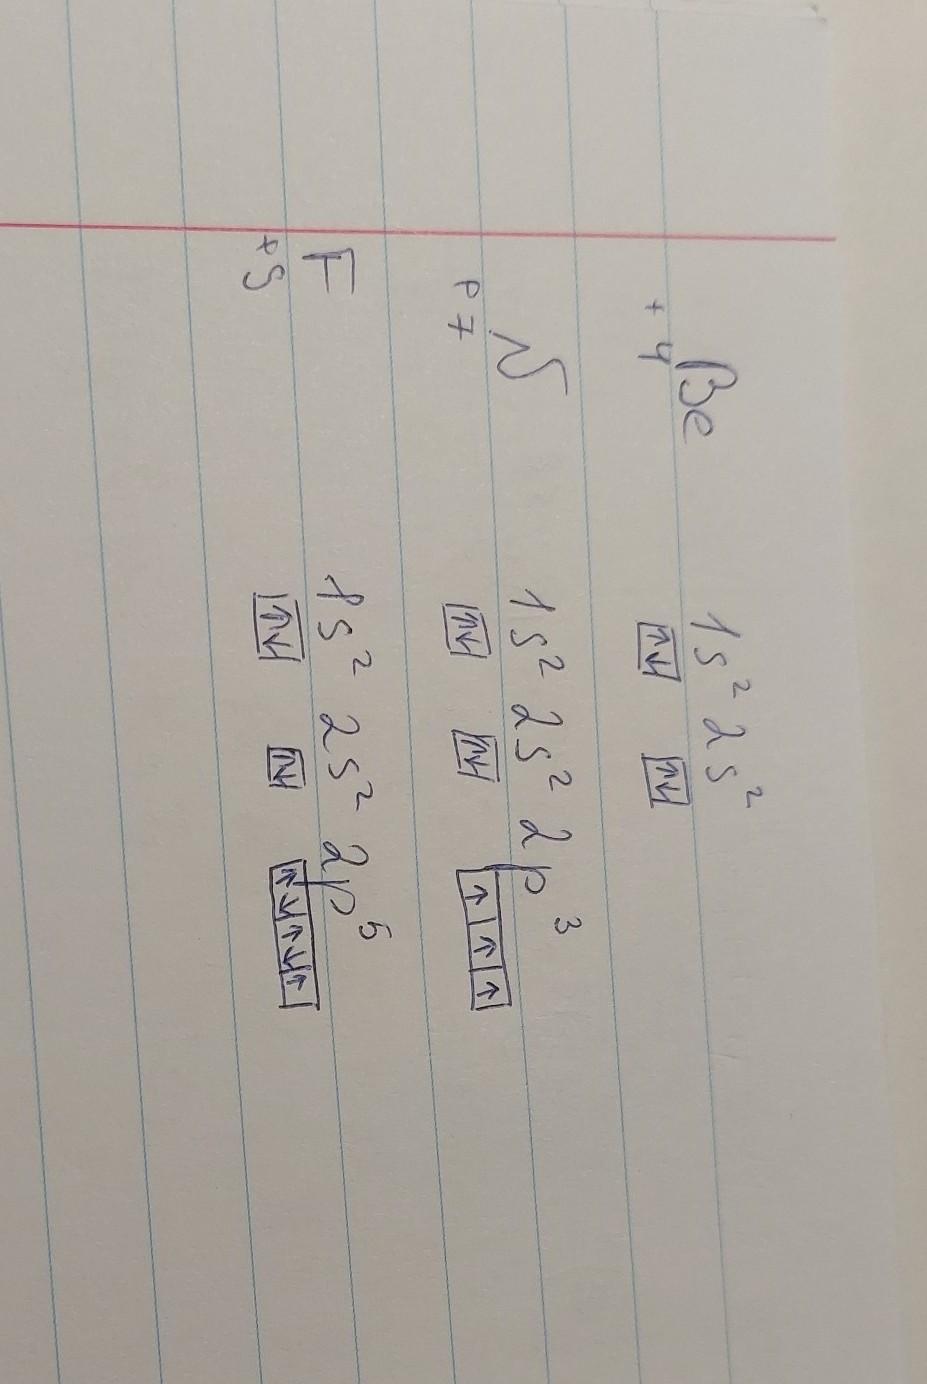 Be 1s² 2s²
+4 ↑↓ ↑↓
N 1s² 2s² 2p³
+7 ↑↓ ↑↓ ↑ ↑ ↑
F 1s² 2s² 2p⁵
+9 ↑↓ ↑↓ ↑↓ ↑↓ ↑